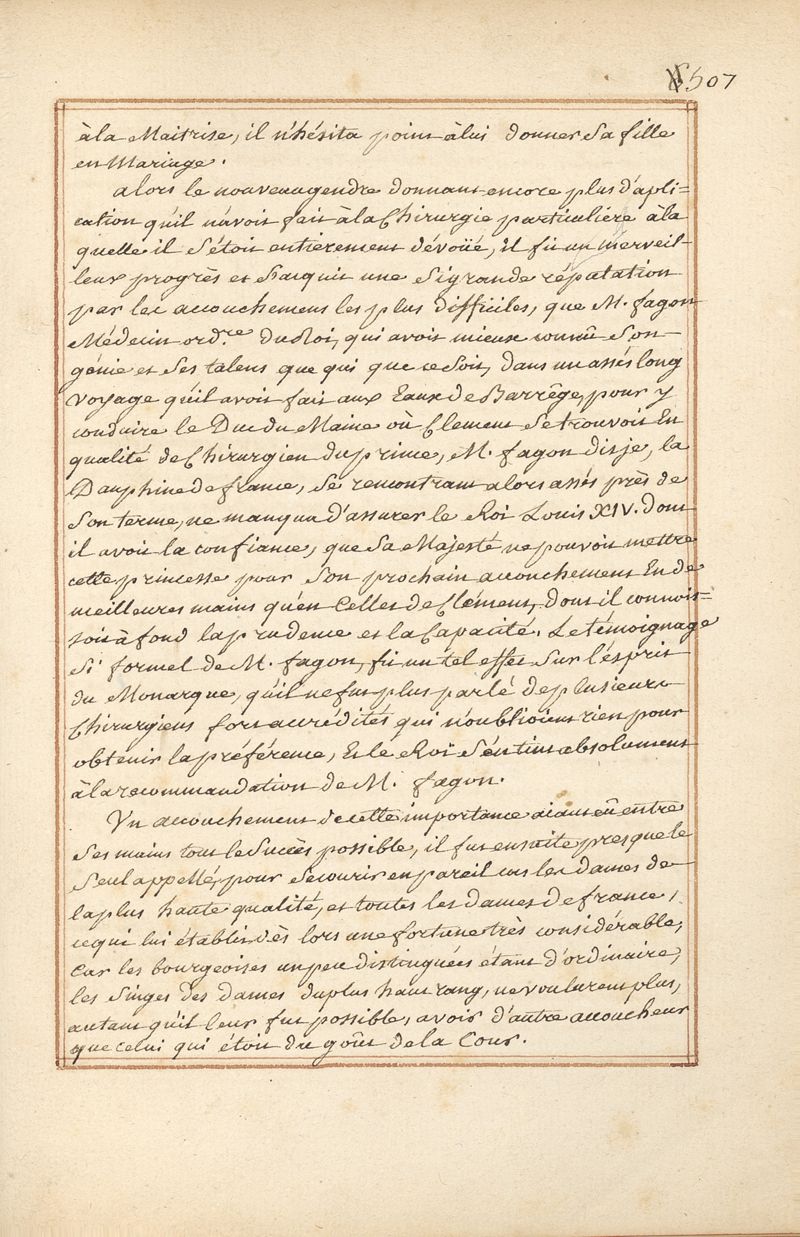 507
à la Maitrise, il n'hésita point à lui donner sa fille
en Mariage.
alors le nouveau gendre donnant encore plus d'apli=
cation qu'il n'avoit fait à la Chirurgie particuliére à la
quelle il s'étoit entiérement dévoüé, il fit un merveil-
leux progrès et s'acquit une si grande réputation
par les accouchemens les plus difficiles, que M. fagon
Médecin ord.re du Roi, qui avoit mieux connû son
génie et ses talens que qui que ce soit, dans un assés long
voyage qu'il avoit fait aux Eaux de Barrêge, pour y
conduire le Duc du Maine où Clement se trouvoit En
qualité de Chirurgien du prince, M. fagon disje, la
Dauphine de france, se rencontrant alors assés près de
son terme, ne manqua d'assurer le Roi Louis XIV. dont
il avoit la confiance, que Sa Majesté ne pouvoit mettre
cette princesse pour son prochain accouchement En de
meilleures mains qu'en Celles de Clément, dont il connois=
soit à fond la prudence et la Capacité. Le témoignage
si formel de M. fagon, fit un tel effet sur l'esprit
du Monarque, qu'il ne fut plus parlé de plusieurs
Chirurgiens fort accrédités qui n'oublioient rien pour
obtenir la préférence, Et le Roi s'en tint absolument
à la recommandation de M. fagon.
Un accouchement de cette importance aiant eû entre
ses mains tout le succès possible, il fut ensuite presque le
seul appellé, pour secourir en pareil cas les dames de
la plus haute qualité, et toutes les dames de france,
ce qui lui établit dès lors une fortune très considérable,
Car les bourgeoises un peu distinguées étant d'ordinaire,
les singes des dames du plus haut rang, ne voulurent plus,
autant qu'il leur fut possible, avoir d'autre accoucheur
que celui qui étoit du goût de la Cour.